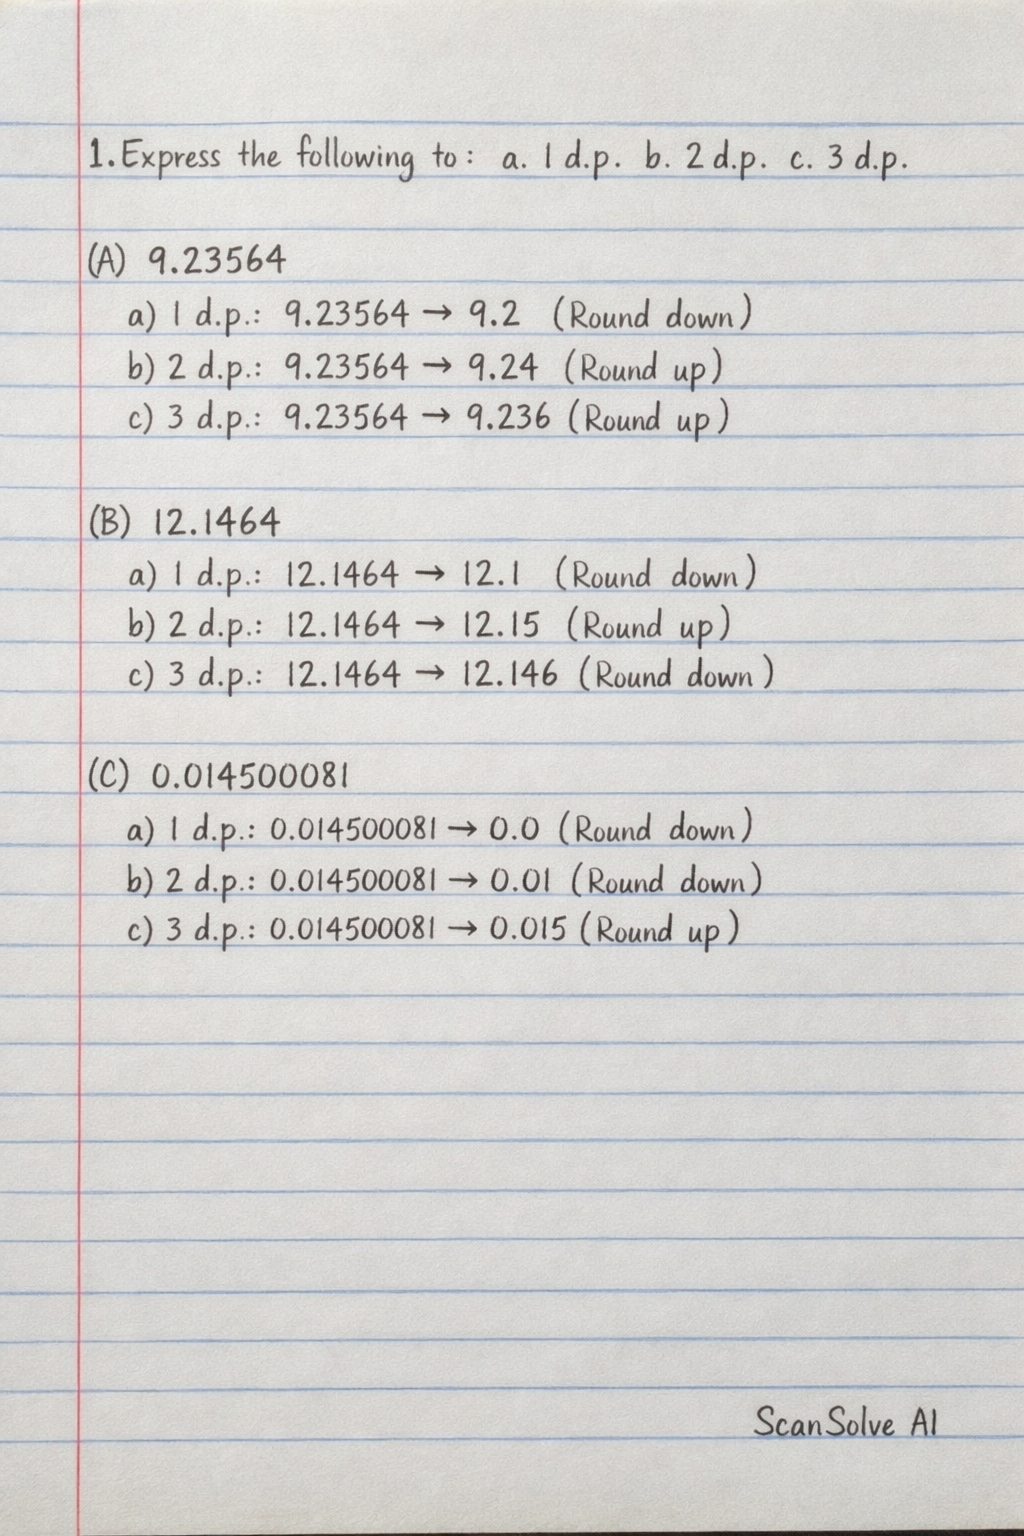 1. Express the following to: a. 1 d.p. b. 2 d.p. c. 3 d.p.
(A) 9.23564
a) 1 d.p.: 9.23564 → 9.2 (Round down)
b) 2 d.p.: 9.23564 → 9.24 (Round up)
c) 3 d.p.: 9.23564 → 9.236 (Round up)
(B) 12.1464
a) 1 d.p.: 12.1464 → 12.1 (Round down)
b) 2 d.p.: 12.1464 → 12.15 (Round up)
c) 3 d.p.: 12.1464 → 12.146 (Round down)
(C) 0.014500081
a) 1 d.p.: 0.014500081 → 0.0 (Round down)
b) 2 d.p.: 0.014500081 → 0.01 (Round down)
c) 3 d.p.: 0.014500081 → 0.015 (Round up)
ScanSolve AI